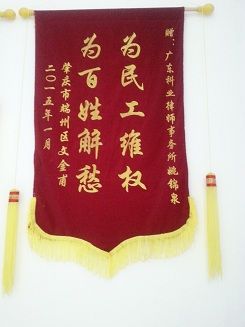 赠：广东科业律师事务所姚锦泉
为民工维权
为百姓解愁
肇庆市端州区文金甫
二〇一五年一月